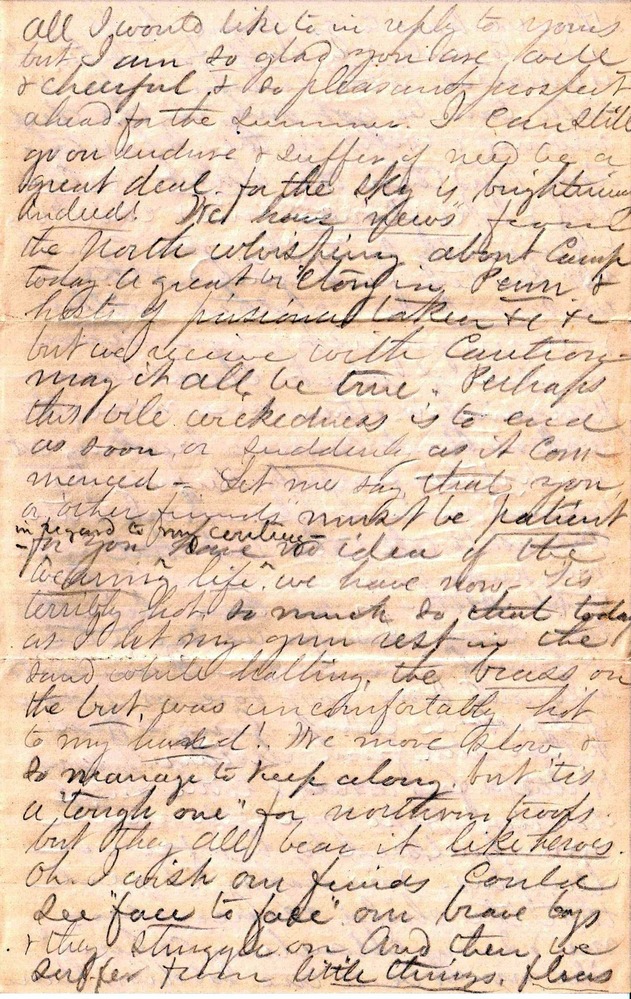 all I would like to in reply to yours
but I am so glad you are well
& cheerful, & so pleasant prospect
ahead for the summer. I can still
go on endure & suffer if need be a
great deal. for the sky is brightening
indeed! We have "news" from
the North whispering about Camp
today a great victory in Penn &
hosts of prisoners taken &c &c
but we receive with Caution -
may it all be true. Perhaps
this vile wickedness is to end
as soon or suddenly as it Com-
menced - Let me say that you
or other friends must be patient
in regard to my writing -
- for you have no idea of the
"wearing life" we have now. Tis
terribly hot so much so that today
as I let my gun rest in the
sand while halting, the brass on
the but, was uncomfortably hot
to my hand! We move slow, &
so manage to keep along. but 'tis
a "tough one" for northern troops.
but they all bear it like heroes.
Oh I wish our friends could
see "face to face" our brave boys
& they struggle on And then we
suffer from little things. fleas